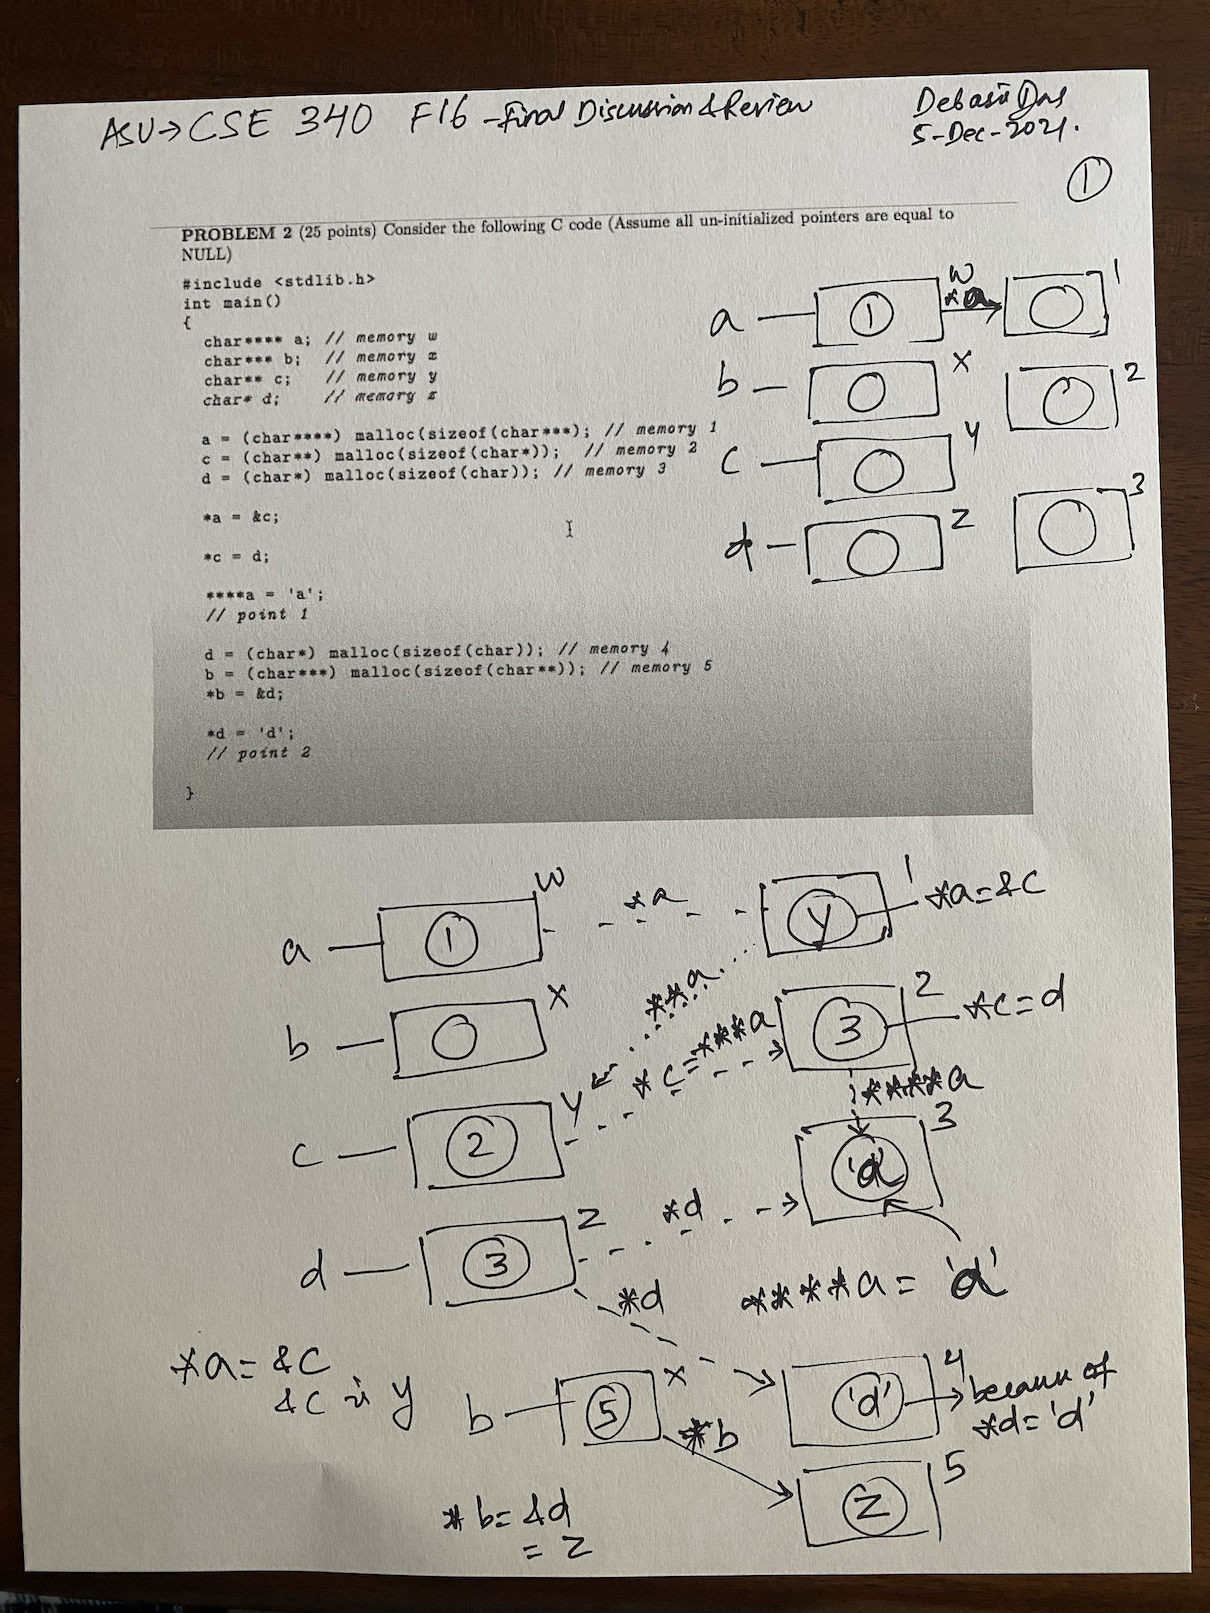 ASU→CSE 340 F16 - Final Discussion & Review
Debasis Das
5-Dec-2021.
①
PROBLEM 2 (25 points) Consider the following C code (Assume all un-initialized pointers are equal to
NULL)
#include <stdlib.h>
int main()
{
char**** a; // memory w
char*** b; // memory x
char** c; // memory y
char* d; // memory z
a = (char****) malloc(sizeof(char***); // memory 1
c = (char**) malloc(sizeof(char*)); // memory 2
d = (char*) malloc(sizeof(char)); // memory 3
*a = &c;
*c = d;
****a = 'a';
// point 1
d = (char*) malloc(sizeof(char)); // memory 4
b = (char***) malloc(sizeof(char**)); // memory 5
*b = &d;
*d = 'd';
// point 2
}
a 1 w *a 0 1
b 0 x 0 2
c 0 y
d 0 z 0 3
a 1 w *a y 1 *a=&c
**a
b 0 x 3 2 *c=d
*c=***a
****a
c 2 y 'a' 3
d 3 z *d
*d ****a = 'a'
*a= &c
&c is y
b 5 x 'd' 4 because of
*d='d'
*b z 5
*b= &d
= z